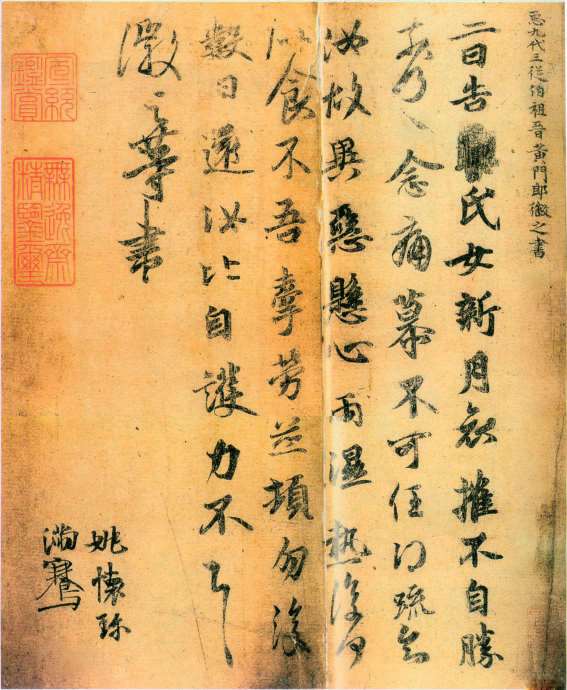 𢘑九代三從伯祖晉黃門郎徽之書
二日告氏女新月哀摧不自勝
奈何〻念痛慕不可任得疏知
汝故異惡懸心雨濕熱復何
似食不吾牽勞並頓勿復
數日還汝比自護力不具
徽之等書
姚懷珍
滿騫
無逸齋
精鑒璽